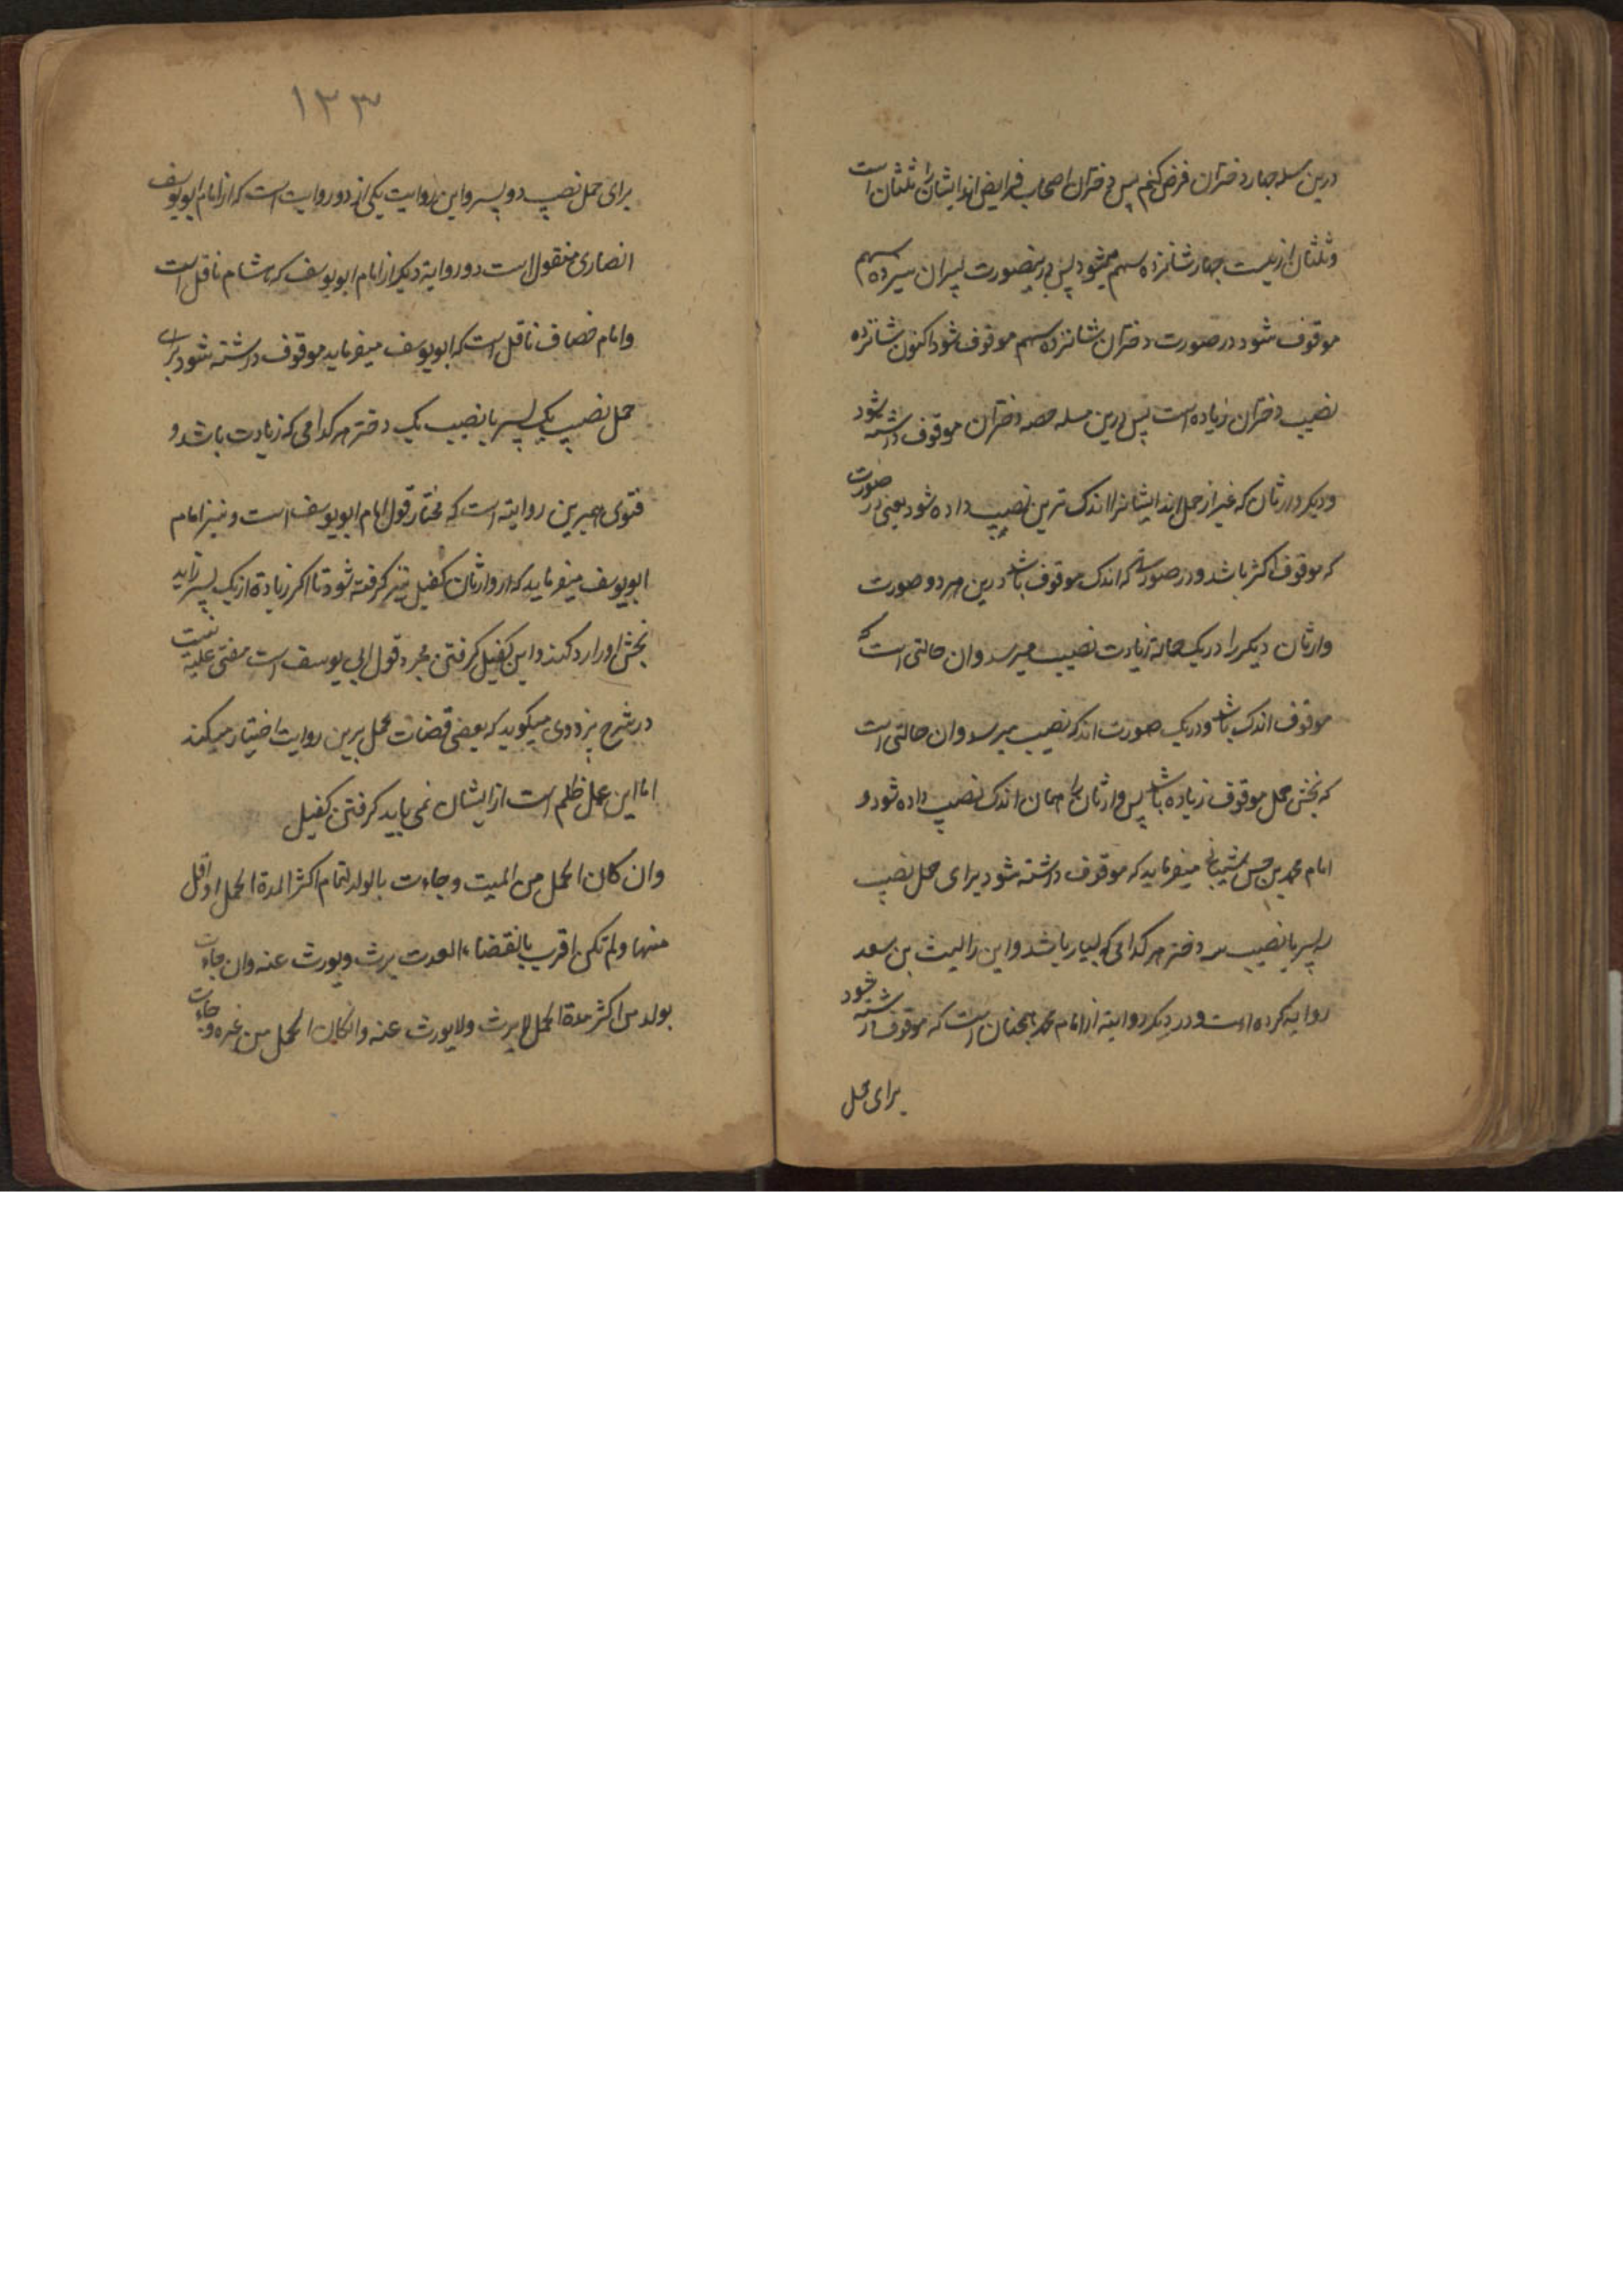 درین مسله چهار دختران فرض کنیم پس دختران اصحاب فرایض اند ایشان را ثلثان است
و ثلثان از بیست چهار شانزده سهم میشود پس درینصورت پسران سیزده سهم
موقوف شود در صورت دختران شانزده سهم موقوف شود اکنون شانزده
نصیب دختران زیاده است پس درین مسله حصه دختران موقوف داشته شود
و دیکر وارثان که غیر از حمل اند ایشانرا اندک ترین نصیب داده شود یعنی در صورت
که موقوف اکثر باشد و در صورت که اندک موقوف باشد درین هر دو صورت
وارثان دیکر را در یک حالة زیادت نصیب میرسد وان حالتی است که
موقوف اندک باشد و در یک صورت اندک نصیب میرسد وان حالتی است
که بخش حمل موقوف زیاده باشد پس وارثان را همان اندک نصیب داده شود و
امام محمد بن حسن شیبانی میفرماید که موقوف داشته شود برای حمل نصیب
سه پسر یا نصیب سه دختر هر کدامی که بسیار باشد و این را لیث بن سعد
روایه کرده است و در دیکر روایته از امام محمد همچنان است که موقوف داشته شود
برای حمل
١٣٣
برای حمل نصیب دو پسر و این روایت یکی از دو روایت است که از امام ابویوسف
انصاری منقول است و روایة دیکر از امام ابویوسف که هشام ناقل است
و امام خصاف ناقل است که ابویوسف میفرماید موقوف داشته شود برای
حمل نصیب یک پسر یا نصیب یک دختر هر کدامی که زیادت باشد و
فتوی هم برین روایته است که مختار قول امام ابویوسف است و نیز امام
ابویوسف میفرماید که از وارثان کفیل نیز کرفته شود تا اکر زیادة از یک پسر زاید
بخش او را رد کنند و این کفیل کرفتن مجرد قول ابی یوسف است مفتی علیه نیست
در شرح بزدوی میکوید که بعضی قضات عمل برین روایت اختیار میکند
اما این عمل ظلم است از ایشان نمی باید کرفتن کفیل
وان کان الحمل من المیت وجاءت بالولد لتمام اکثر المدة الحمل او اقل
منها ولم تکن اقرت بانقضاء العدت یرث ویورث عنه وان جاءت
بولد من اکثر مدة الحمل لا یرث ولا یورث عنه وانکان الحمل من غیره وجاءت